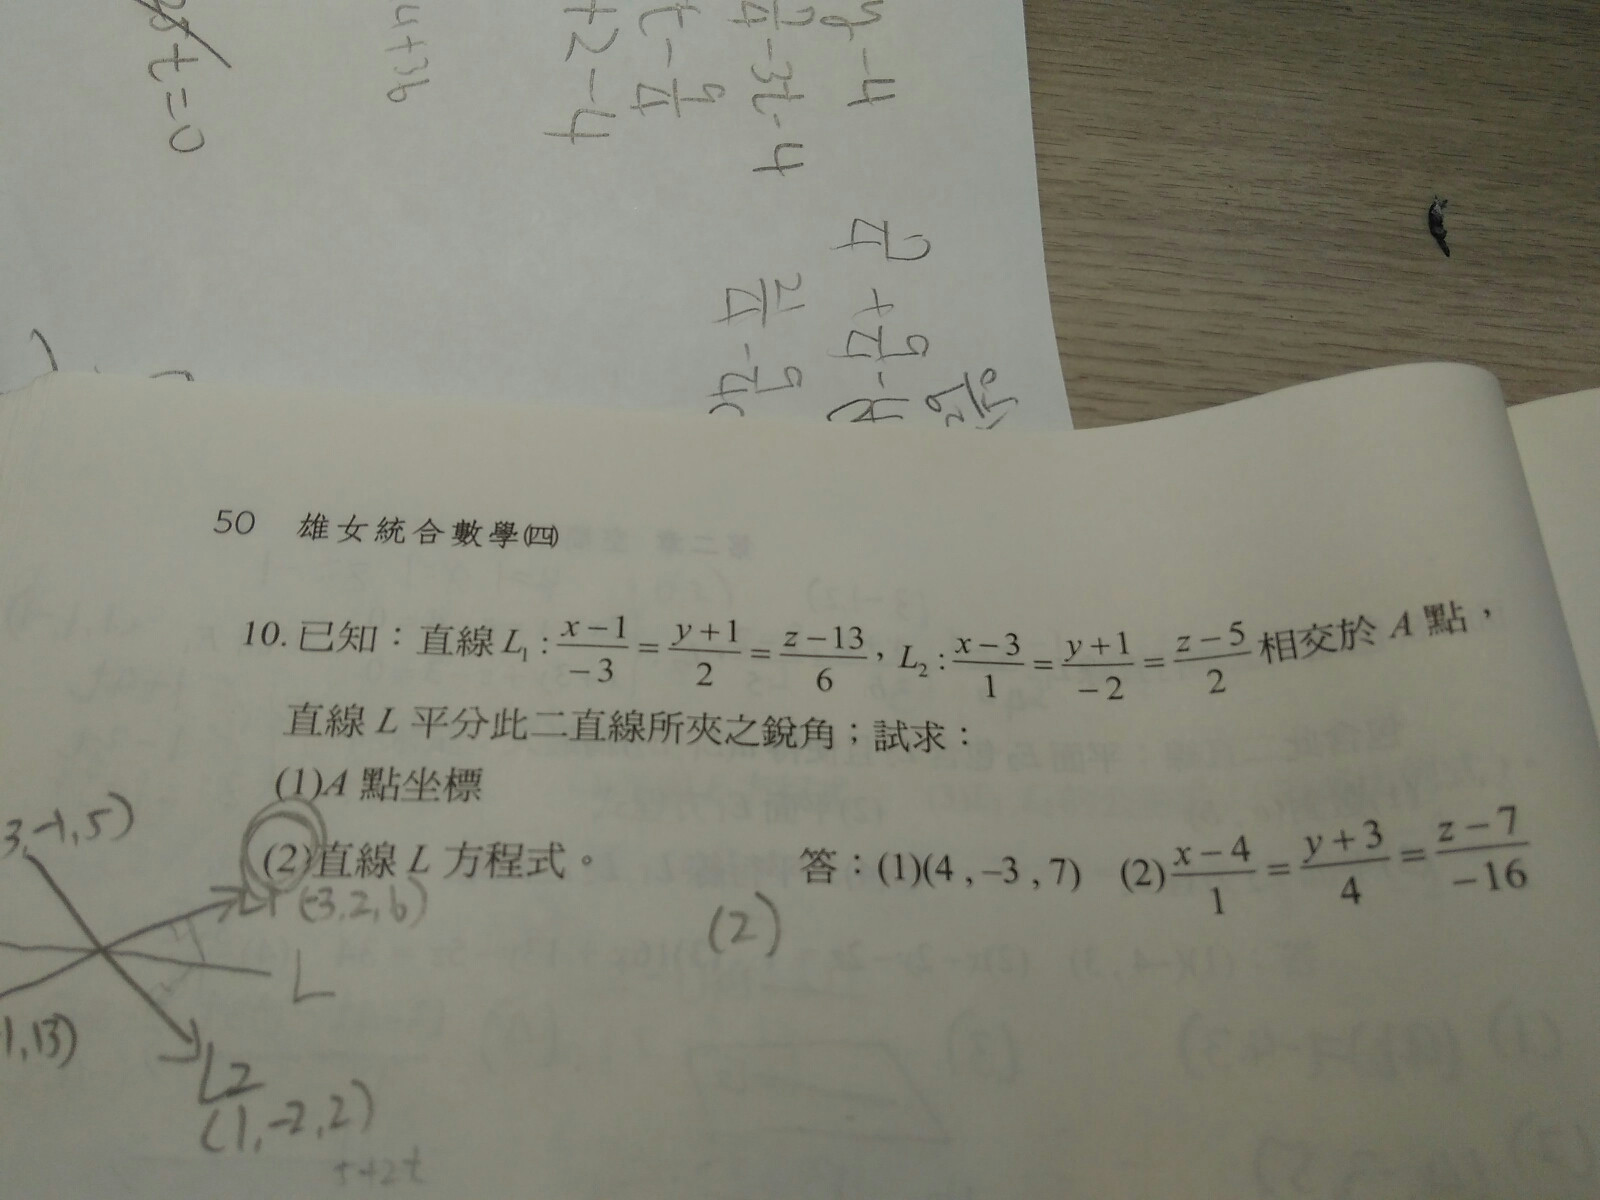 y-4
-3t-4
t-9/4
+2-4
4+36
t=0
9/4
21/4-9/4
50 雄女統合數學(四)
10. 已知：直線 L₁ : (x-1)/(-3) = (y+1)/2 = (z-13)/6，L₂ : (x-3)/1 = (y+1)/(-2) = (z-5)/2 相交於 A 點，
直線 L 平分此二直線所夾之銳角；試求：
(1) A 點坐標
(2) 直線 L 方程式。 答：(1)(4 , -3 , 7) (2) (x-4)/1 = (y+3)/4 = (z-7)/(-16)
3,-1,5)
L1 (-3,2,6)
(2)
L
1,13)
L2
(1,-2,2)